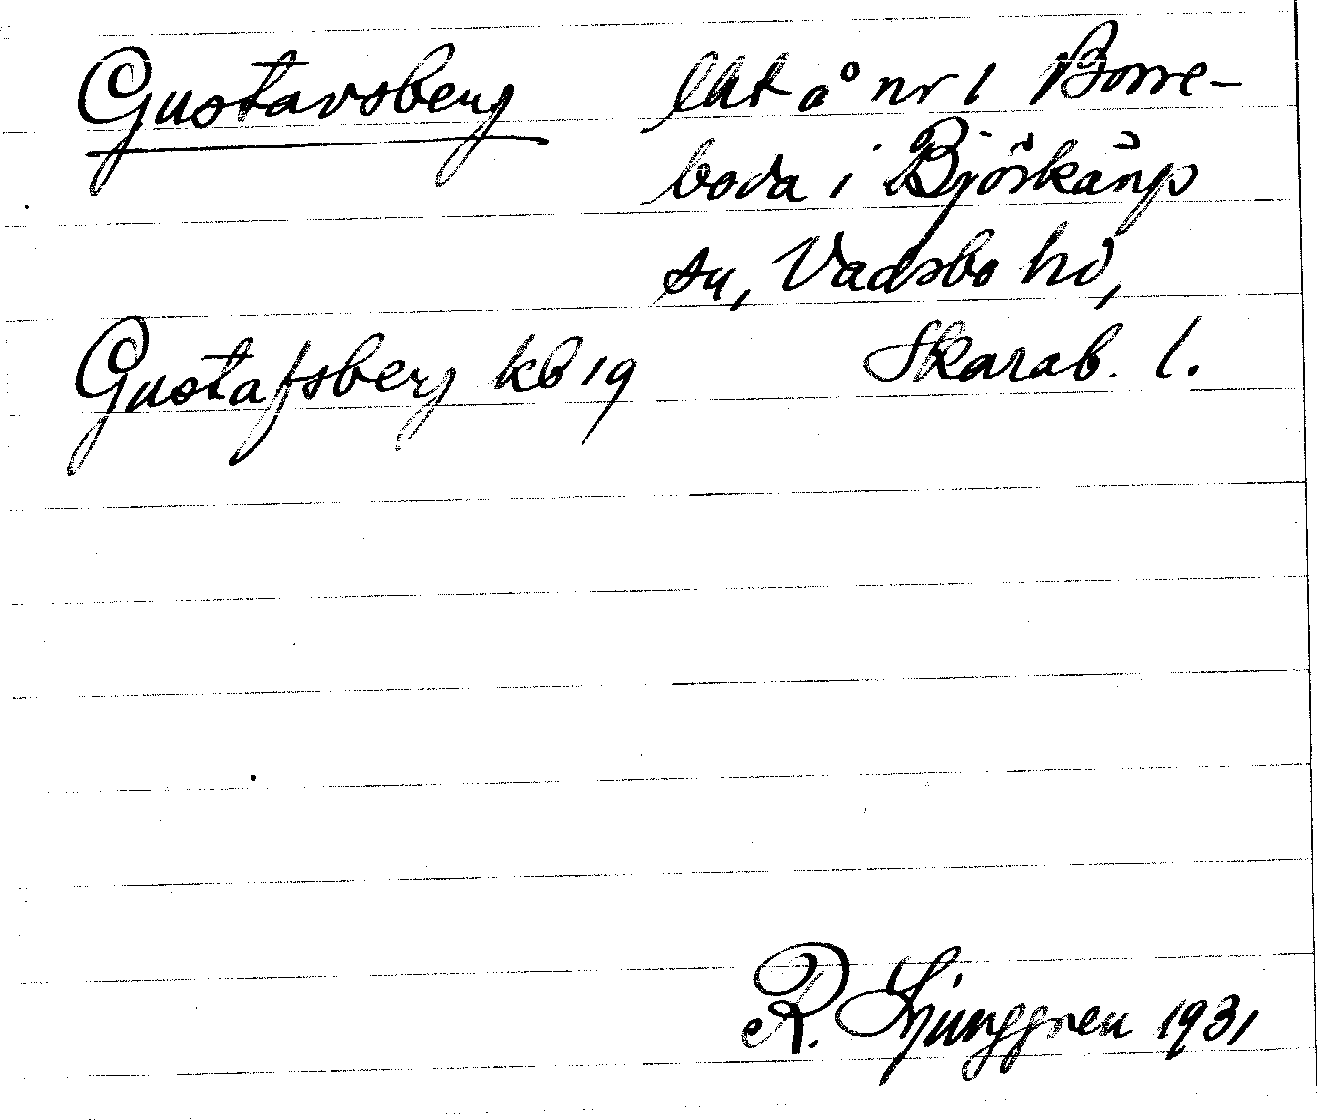 Gustavsberg lht å nr 1 Borre-
boda i Björkäng
sn, Vadsbo hd,
Gustafsberg kb 19 Skarab. l.
R. Ljunggren 1931